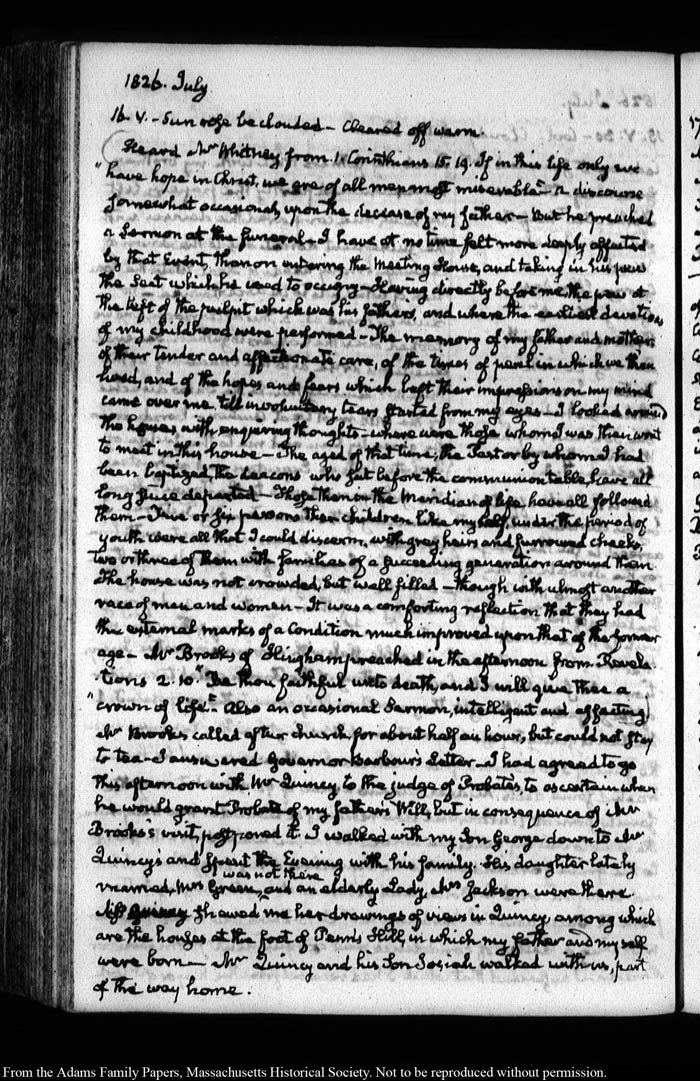 1826. July
16. V. - Sun rose beclouded - Cleared off warm.
Heard Mr Whitney from 1. Corinthians 15. 19. If in this life only we
"have hope in Christ, we are of all men most miserable" - a discourse
somewhat occasional, upon the decease of my father - But he preached
a Sermon at the funeral - I have at no time felt more deeply affected
by that Event, than on entering the Meeting House, and taking in his pew
the Seat which he used to occupy - Having directly before me, the pew at
the left of the pulpit which was his fathers, and where the earliest devotions
of my childhood were performed - The memory of my father and mother
of their tender and affectionate care, of the times of peril in which we then
lived, and of the hopes and fears which left their impressions on my mind
came over me, till involuntary tears started from my eyes - I looked around
the house, with enquiring thoughts - where were those whom I was then wont
to meet in this house - The aged of that time; the Pastor by whom I had
been baptized, the deacons who sat before the communion table, have all
long since departed - Those then in the Meridian of life have all followed
them - Five or six persons then children like myself, under the period of
youth were all that I could discern, with grey hairs and furrowed cheeks,
two or three of them with families of a succeeding generation around them.
The house was not crowded, but well filled - though with almost another
race of men and women - It was a comforting reflection that they had
the external marks of a Condition much improved upon that of the former
age - Mr Brooks of Hingham preached in the afternoon from Revela
tions 2. 10. "Be thou faithful unto death, and I will give thee a
"crown of life" - Also an occasional Sermon, intelligent and affecting
Mr Brooks called after church, for about half an hour, but could not stay
to tea - I answered Governor Barbour's Letter - I had agreed to go
this afternoon with Mr Quincy to the judge of Probates, to ascertain when
he would grant Probate of my father's Will, but in consequence of Mr
Brooks's visit, postponed it. I walked with my Son George down to Mr
Quincy's and spent the Evening with his family. His daughter lately
was not there
married, Mrs Green, and an elderly Lady, Mrs Jackson were there.
Miss Quincy shewed me her drawings of views in Quincy, among which
are the houses at the foot of Penn's Hill, in which my father and myself
were born - Mr Quincy and his Son Josiah walked with us, part
of the way home.
From the Adams Family Papers, Massachusetts Historical Society. Not to be reproduced without permission.